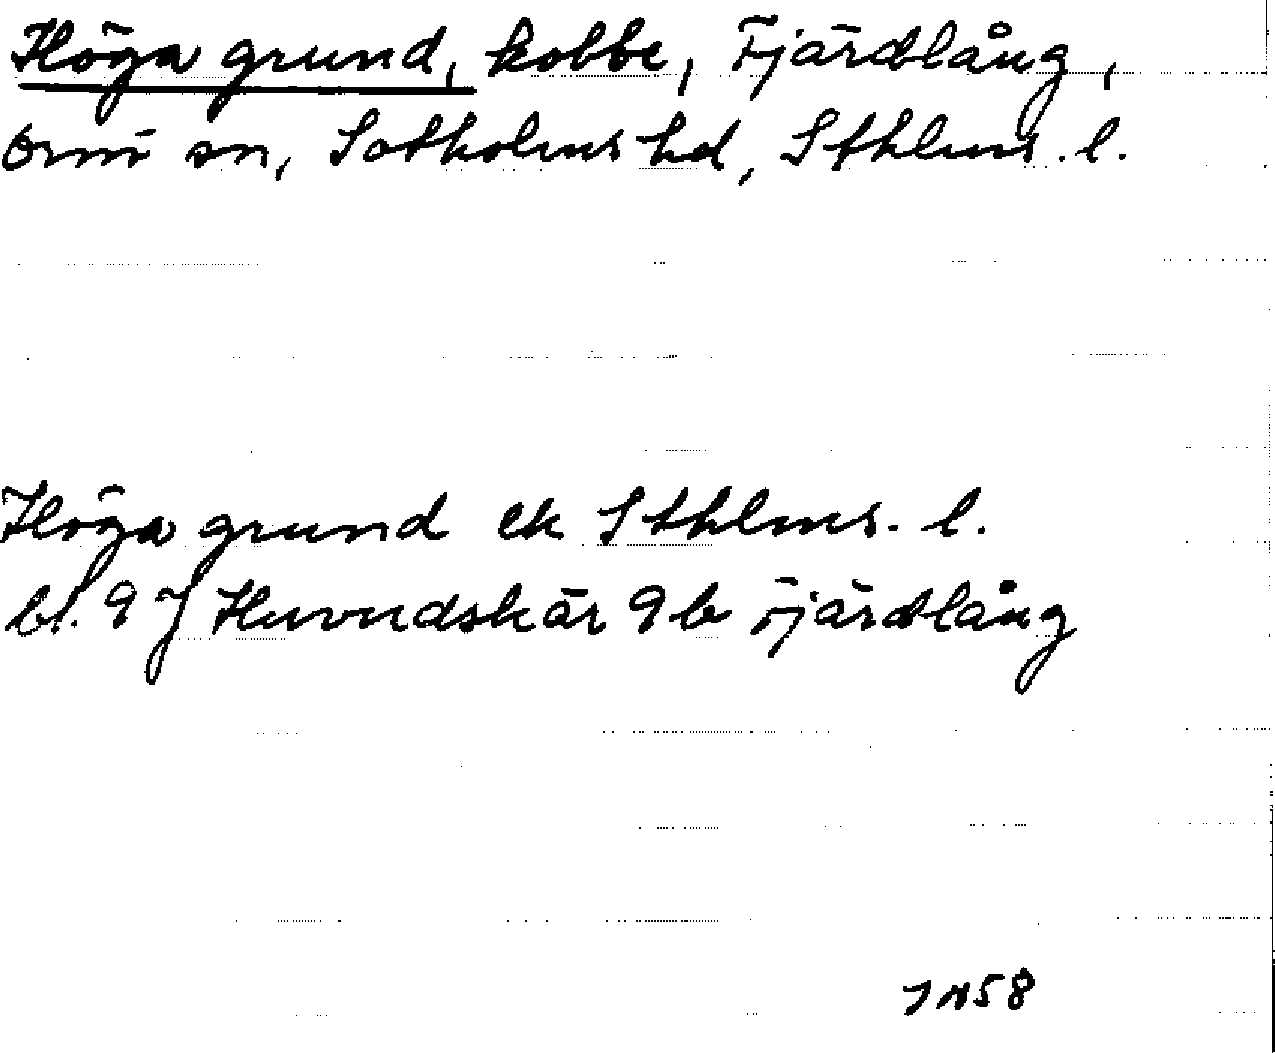 Höga grund, kobbe, Fjärdlång,
Ornö sn, Sotholms hd, Sthlms. l.
Höga grund ek Sthlms. l.
bl. 9 J Huvudskär 9 b Fjärdlång
58